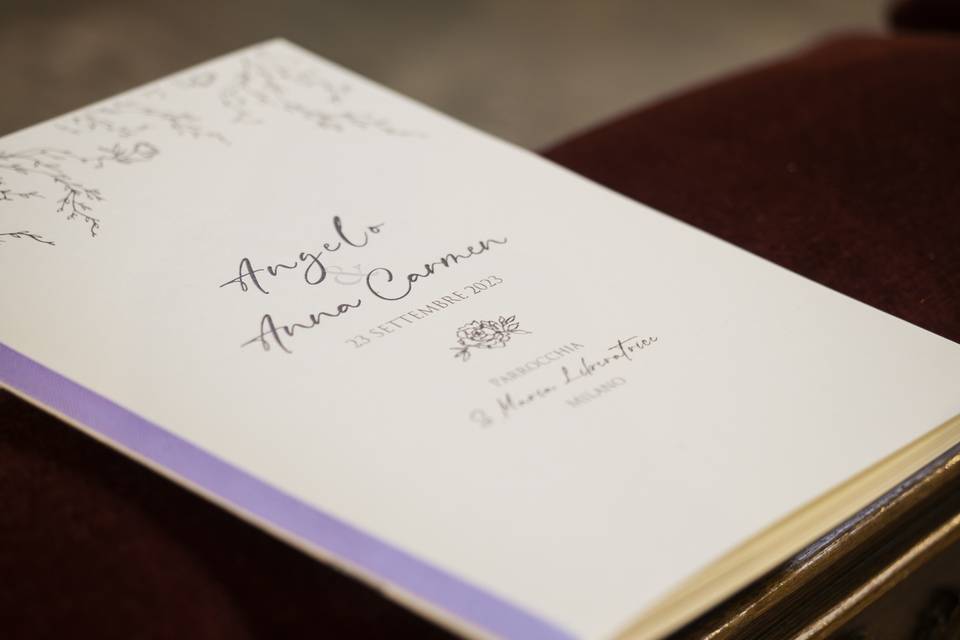 Angelo
&
Anna Carmen
23 SETTEMBRE 2023
PARROCCHIA
S. Maria Liberatrice
MILANO